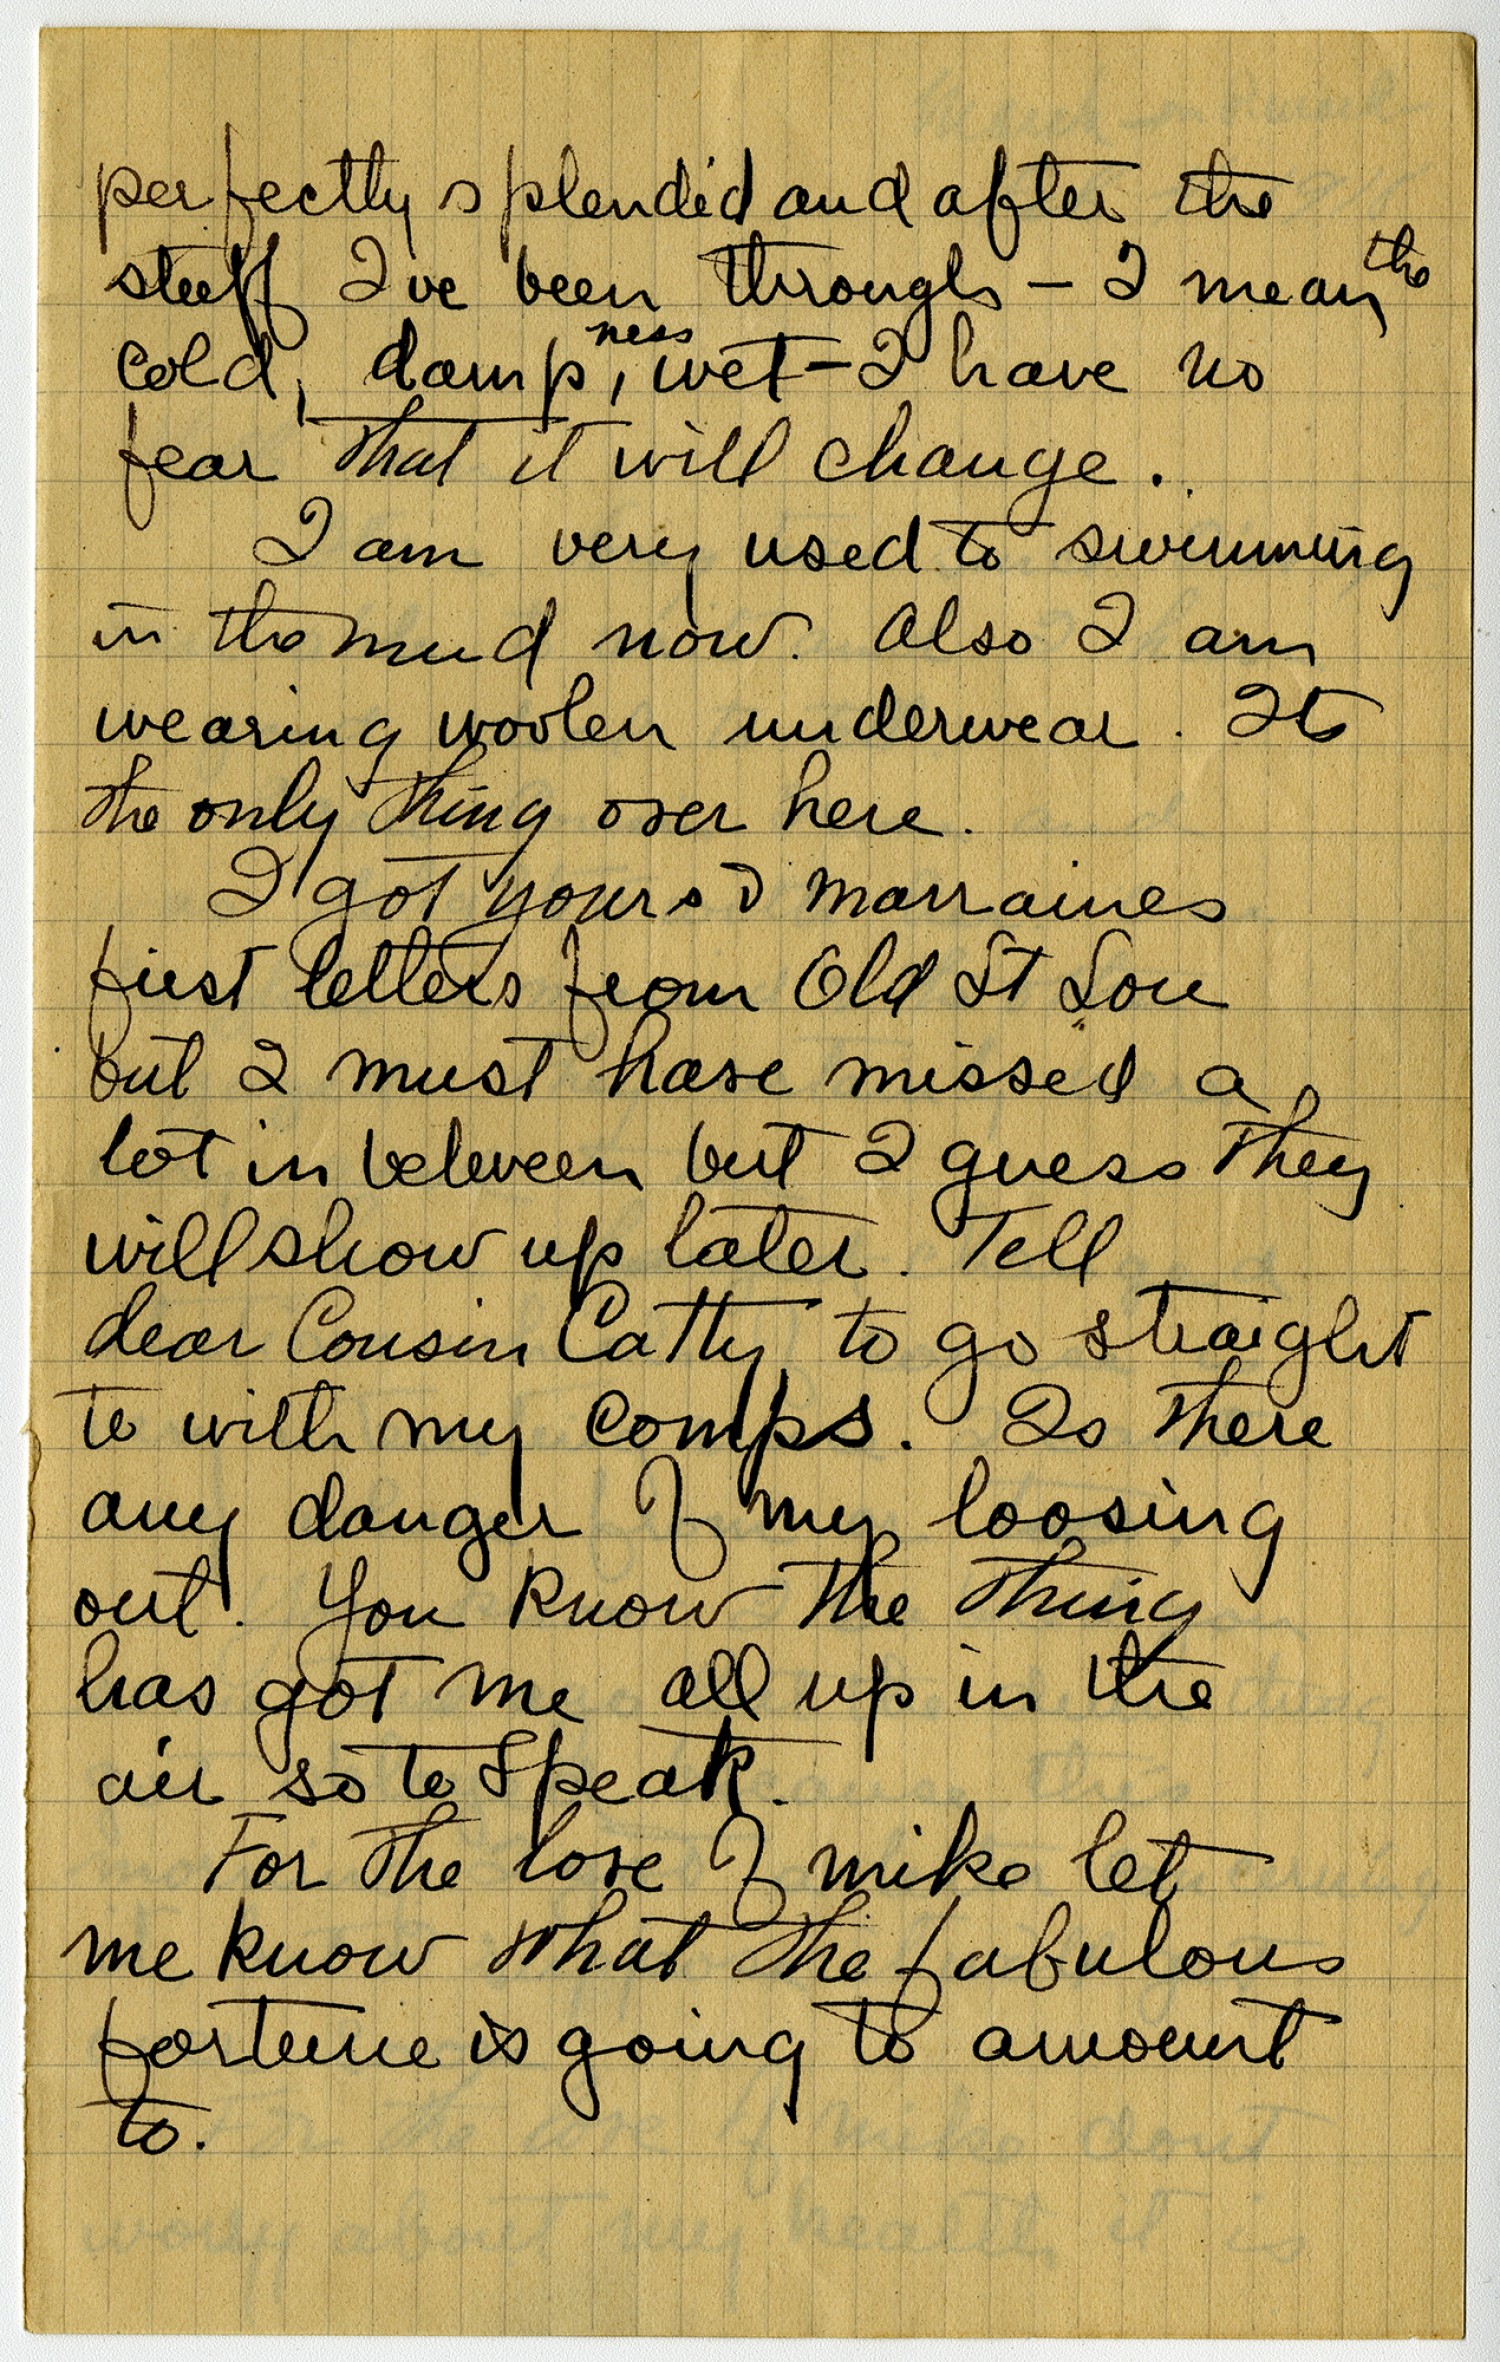 perfectly splendid and after the
stuff I've been through – I mean the
cold, dampness, wet – I have no
fear that it will change.
I am very used to swimming
in the mud now. Also I am
wearing woolen underwear. Its
the only thing over here.
I got yours & Marraines
first letters from Old St Lou
but I must have missed a
lot in between but I guess they
will show up later. Tell
dear Cousin Catty to go straight
to with my comps. Is there
any danger of my loosing
out. You know the thing
has got me all up in the
air so to speak.
For the love of mike let
me know what the fabulous
fortune is going to amount
to.